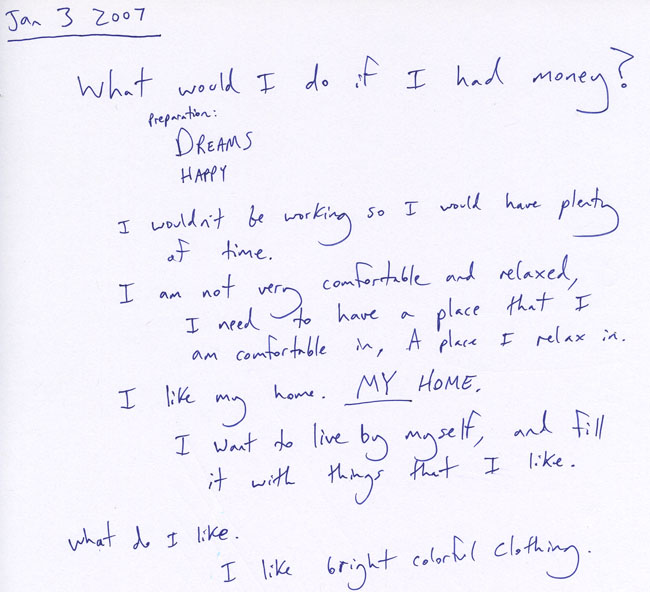 Jan 3 2007
What would I do if I had money?
Preparation:
DREAMS
HAPPY
I wouldn't be working so I would have plenty
of time.
I am not very comfortable and relaxed,
I need to have a place that I
am comfortable in, A place I relax in.
I like my home. MY HOME.
I want to live by myself, and fill
it with things that I like.
what do I like.
I like bright colorful clothing.